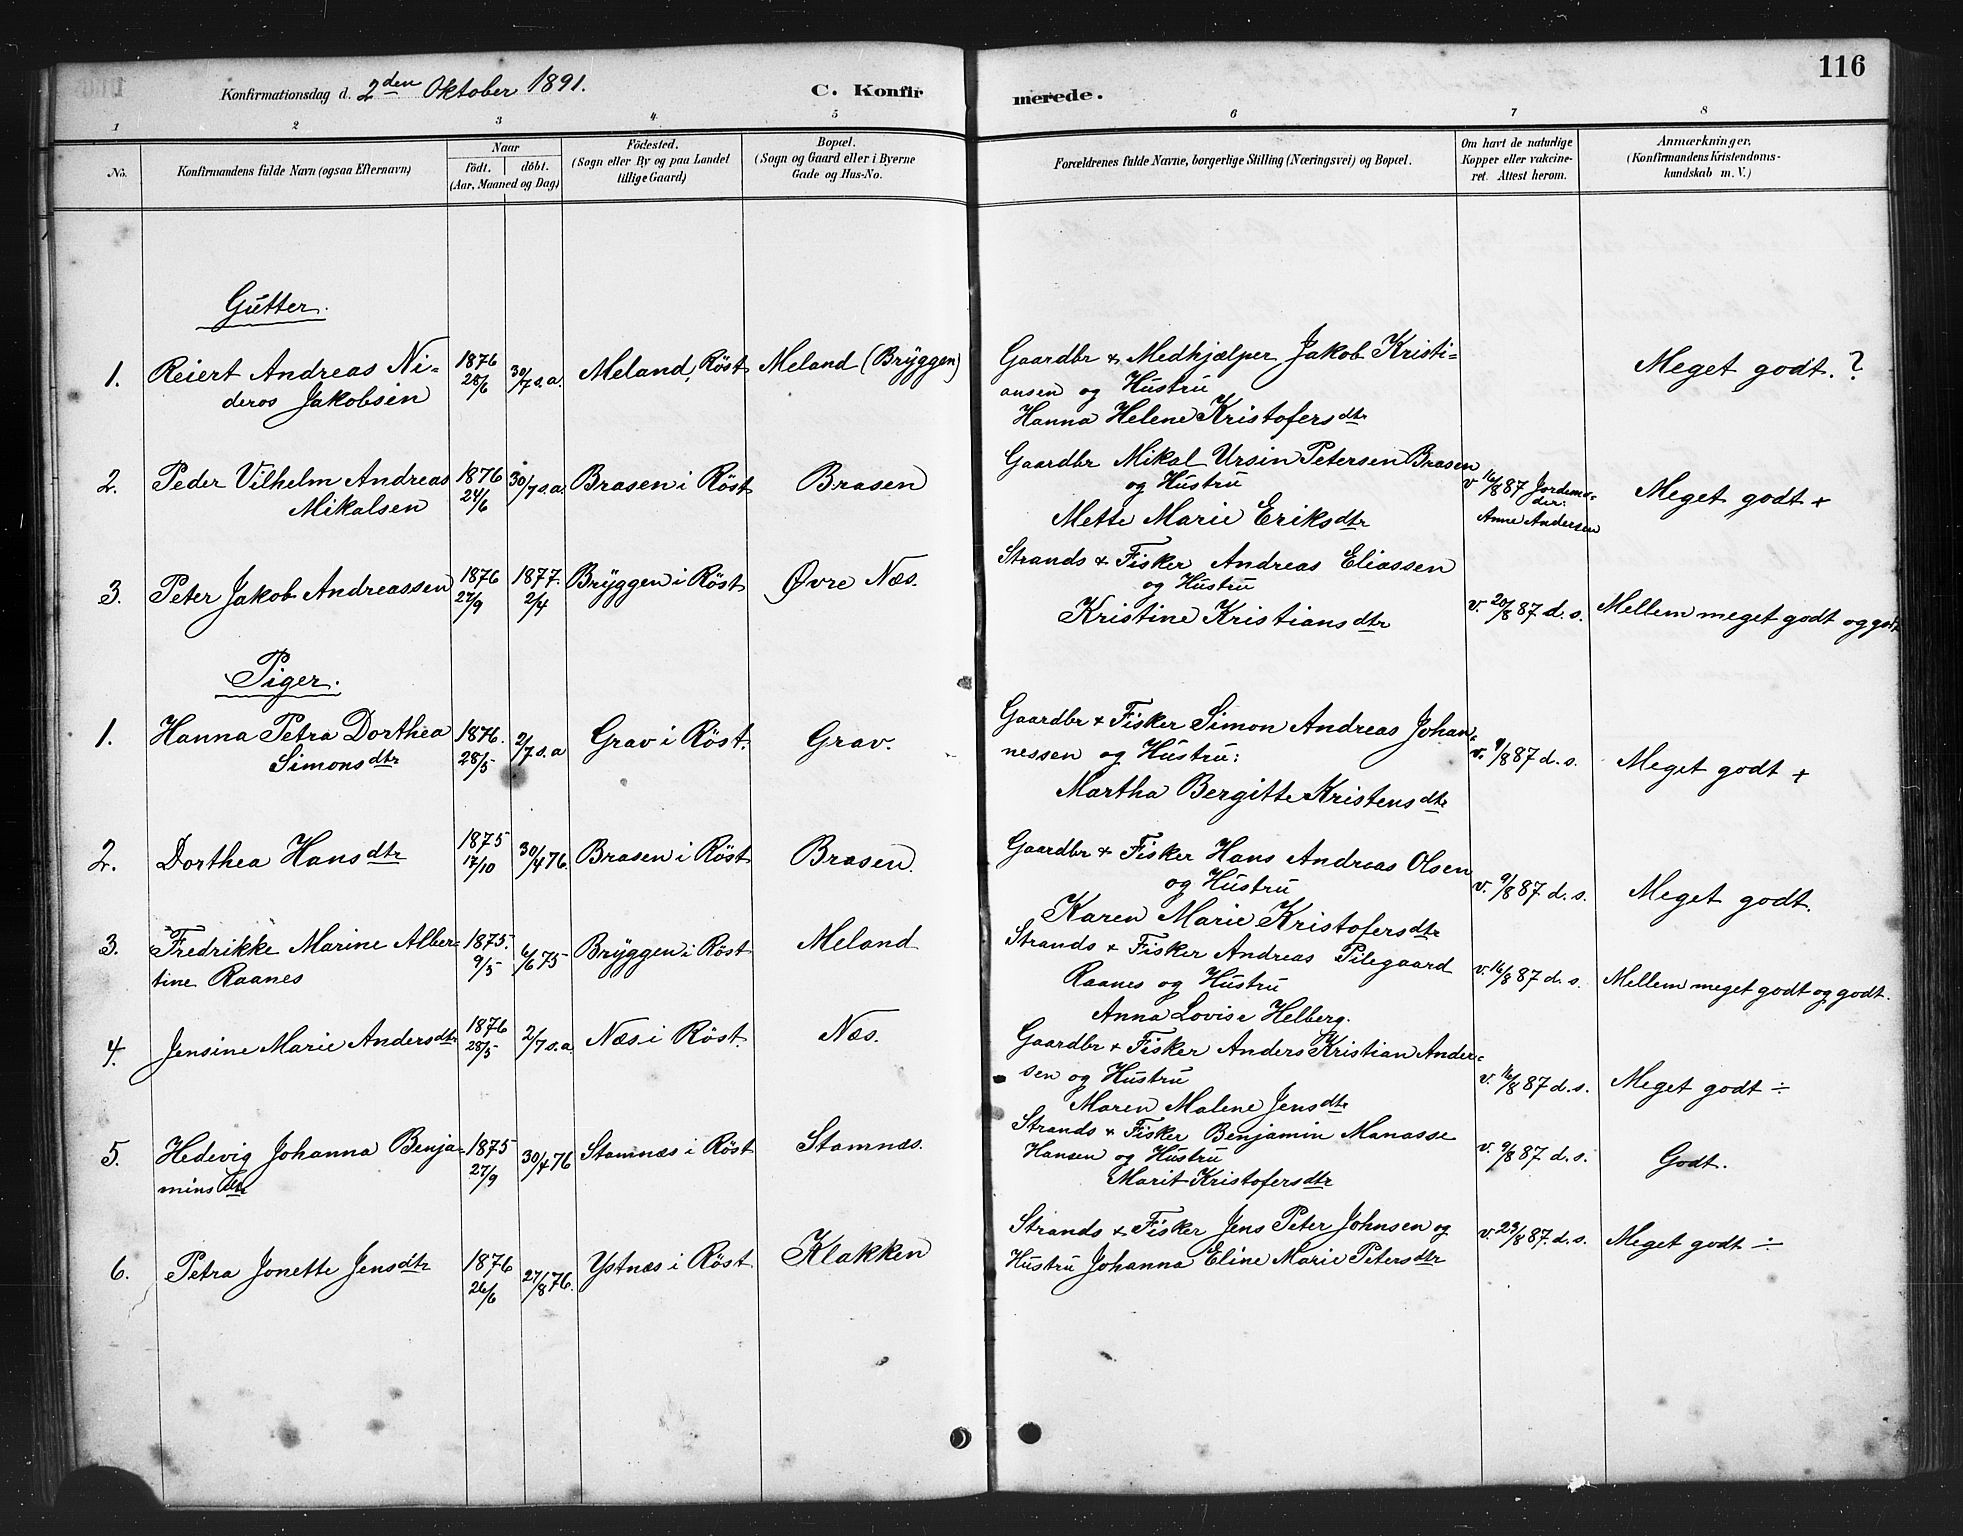 116
Konfirmationsdag d. 2den Oktober 1891.
C. Konfirmerede.
1 2 3 4. 5 6 7 8
No.
Konfirmandens fulde Navn (ogsaa Efternavn)
Naar
födt. döbt.
(Aar, Maaned og Dag)
Födested.
(Sogn eller By og paa Landet
tillige Gaard)
Bopæl.
(Sogn og Gaard eller i Byerne
Gade og Hus-No.
Forældrenes fulde Navne, borgerlige Stilling (Næringsvei) og Bopæl.
Om havt de naturlige
Kopper eller vakcine-
ret. Attest herom.
Anmærkninger.
(Konfirmandens Kristendoms-
kundskab m. V.)
Gutter.
1. Reiert Andreas Ni-
deros Jakobsen
1876
28/6
30/7 s.a.
Meland, Röst
Meland (Bryggen)
Gaardbr & Medhjælper Jakob Kristi-
ansen og Hustru
Hanna Helene Kristofersdtr
Meget godt. ?
2. Peder Vilhelm Andreas
Mikalsen
1876
24/6
30/7 s.a.
Brasen i Röst
Brasen
Gaardbr Mikal Ursin Petersen Brasen
og Hustru
Mette Marie Eriksdtr
v 16/8 87 Jordemo-
der:
Anne Andersen
Meget godt +
3. Peter Jakob Andreassen
1876
27/9
1877.
2/4
Bryggen i Röst
Øvre Næs.
Strands & Fisker Andreas Eliassen
og Hustru
Kristine Kristiansdtr
v. 20/8 87. d. s.
Mellem meget godt og godt
Piger.
1. Hanna Petra Dorthea
Simonsdtr
1876.
28/5
2/7 s.a
Grav i Röst.
Grav.
Gaardbr & Fisker Simon Andreas Johan-
nessen og Hustru:
Martha Bergitte Kristensdtr
v. 9/8 87 d. s.
Meget godt +
2. Dorthea Hansdtr
1875
17/10
30/4 76.
Brasen i Röst
Brasen.
Gaardbr & Fisker Hans Andreas Olsen
og Hustru
Karen Marie Kristofersdtr
v. 9/8 87. d. s.
Meget godt.
3. Fredrikke Marine Alber-
tine Raanes
1875.
9/5
6/6 75
Bryggen i Röst
Meland
Strands & Fisker Andreas Pilegaard
Raanes og Hustru
Anna Lovise Helberg.
v. 16/8 87 d. s.
Mellem meget godt og godt.
4. Jensine Marie Andersdtr
1876
28/5
2/7 s.a.
Næs i Röst.
Næs.
Gaardbr & Fisker Anders Kristian Ander-
sen og Hustru
Maren Malene Jensdtr
v. 16/8 87 d. s.
Meget godt ÷
5. Hedevig Johanna Benja-
minsdtr
1875
27/9
30/4 76
Stamnæs i Röst
Stamnæs.
Strands & Fisker Benjamin Manasse
Hansen og Hustru
Marit Kristofersdtr
v. 9/8 87. d. s.
Godt.
6. Petra Jonette Jensdtr
1876
26/6
27/8 76.
Ystnæs i Röst
Klakken
Strands & Fisker Jens Peter Johnsen og
Hustru Johanna Eline Marie Petersdtr
v. 23/8 87. d. s.
Meget godt ÷